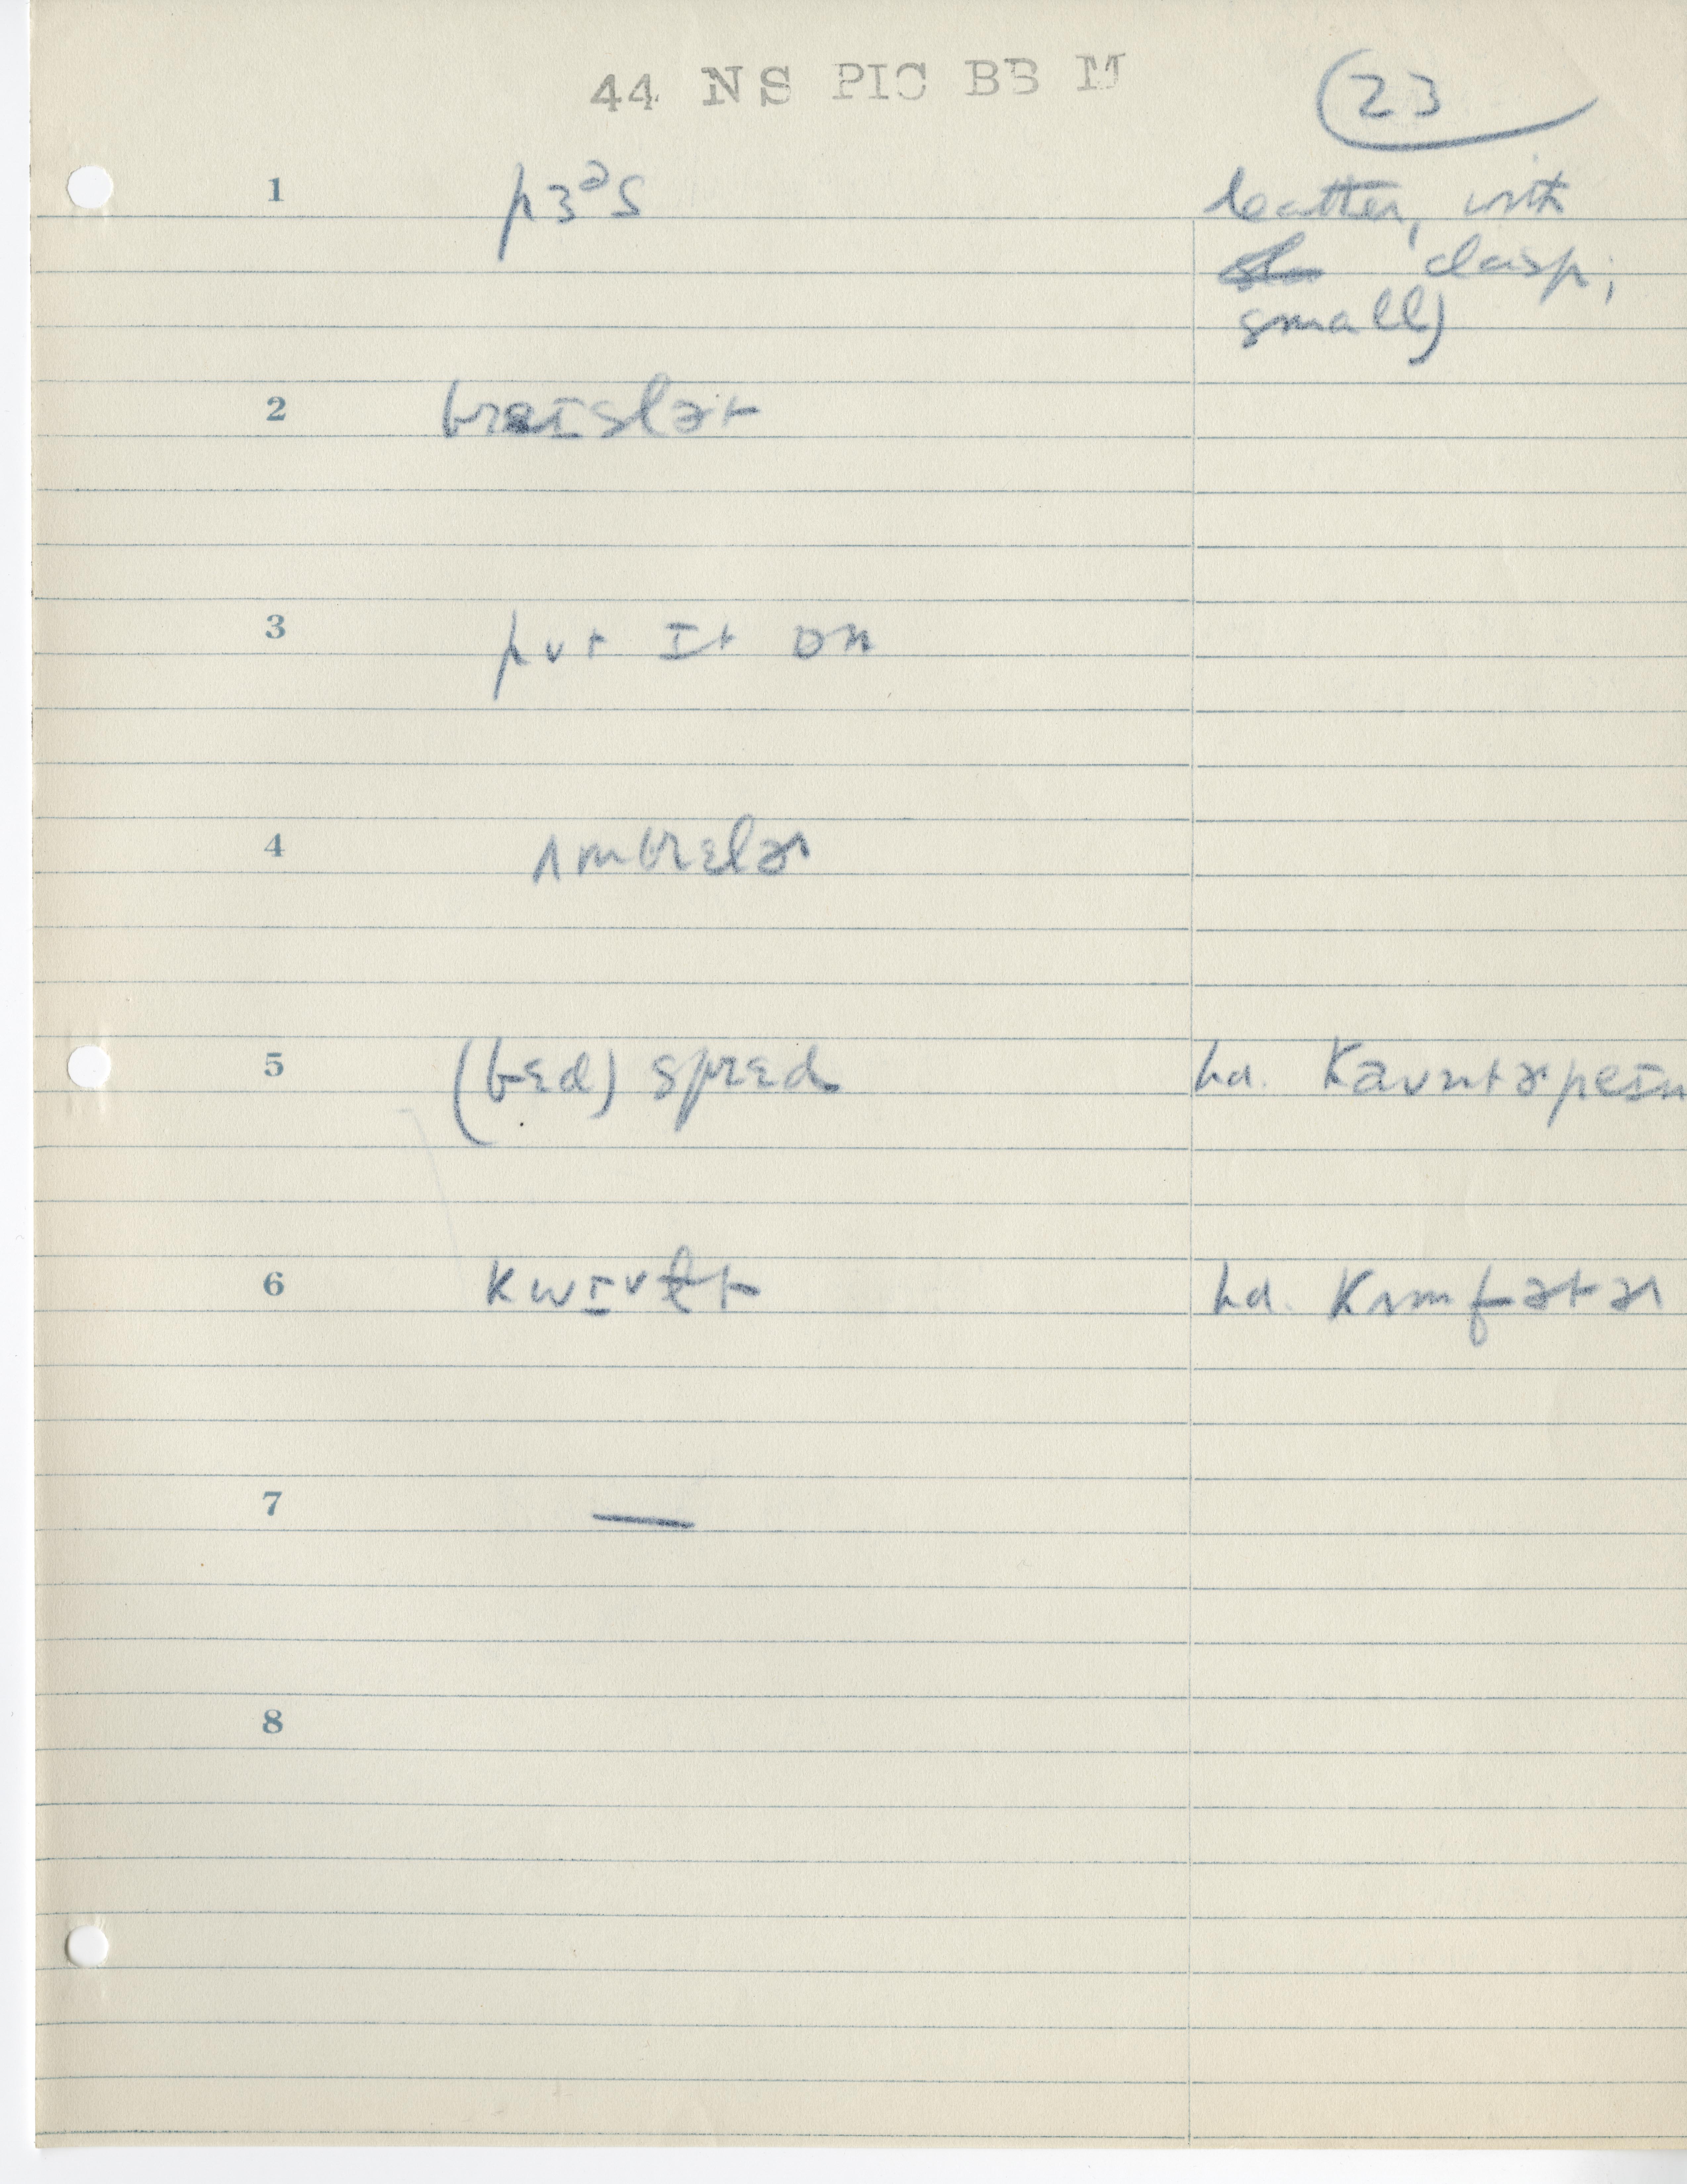 44 NS PIC BB M
23
1 pɜᵊs leather, with
clasp;
small)
2 breɪslət
3 pʊt ɪt ɒn
4 ʌmbrelɚ
5 (bɛd) sprɛd hd. Kaʊntɚpeɪn
6 kwɪʊɫt hd. Kʌmfətɚ
7 —
8